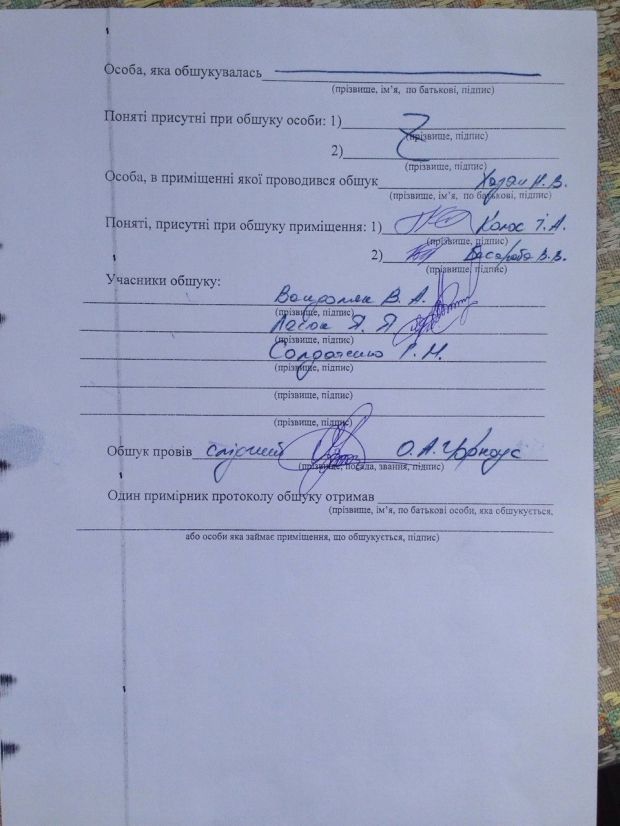 Особа, яка обшукувалась
(прізвище, ім’я, по батькові, підпис)
Поняті присутні при обшуку особи: 1)
(прізвище, підпис)
2)
(прізвище, підпис)
Особа, в приміщенні якої проводився обшук
(прізвище, ім’я, по батькові, підпис)
Поняті, присутні при обшуку приміщення: 1) Колос І. А.
(прізвище, підпис)
2) Басараба В.В.
(прізвище, підпис)
Учасники обшуку:
В. А.
(прізвище, підпис)
Я. Я
(прізвище, підпис)
Солдатенко Р. М.
(прізвище, підпис)
(прізвище, підпис)
(прізвище, підпис)
Обшук провів слідчий О.А.
(прізвище, посада, звання, підпис)
Один примірник протоколу обшуку отримав
(прізвище, ім’я, по батькові особи, яка обшукується,
або особи яка займає приміщення, що обшукується, підпис)